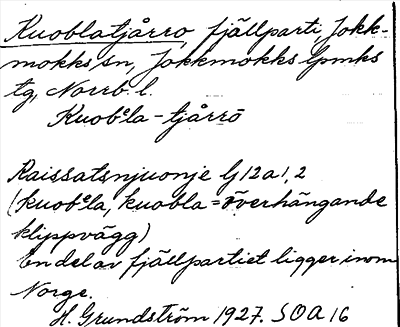 Kuoblatjårro, fjällparti, Jokk-
mokks sn, Jokkmokks lpmks
tg, Norrb. l.
Kuobᵉla-tjårrō
Raissatsnjuonje G 12 a 1,2
(kuobᵉla, kuobla = överhängande
klippvägg)
En del av fjällpartiet ligger inom
Norge.
H. Grundström 1927. SOA 16